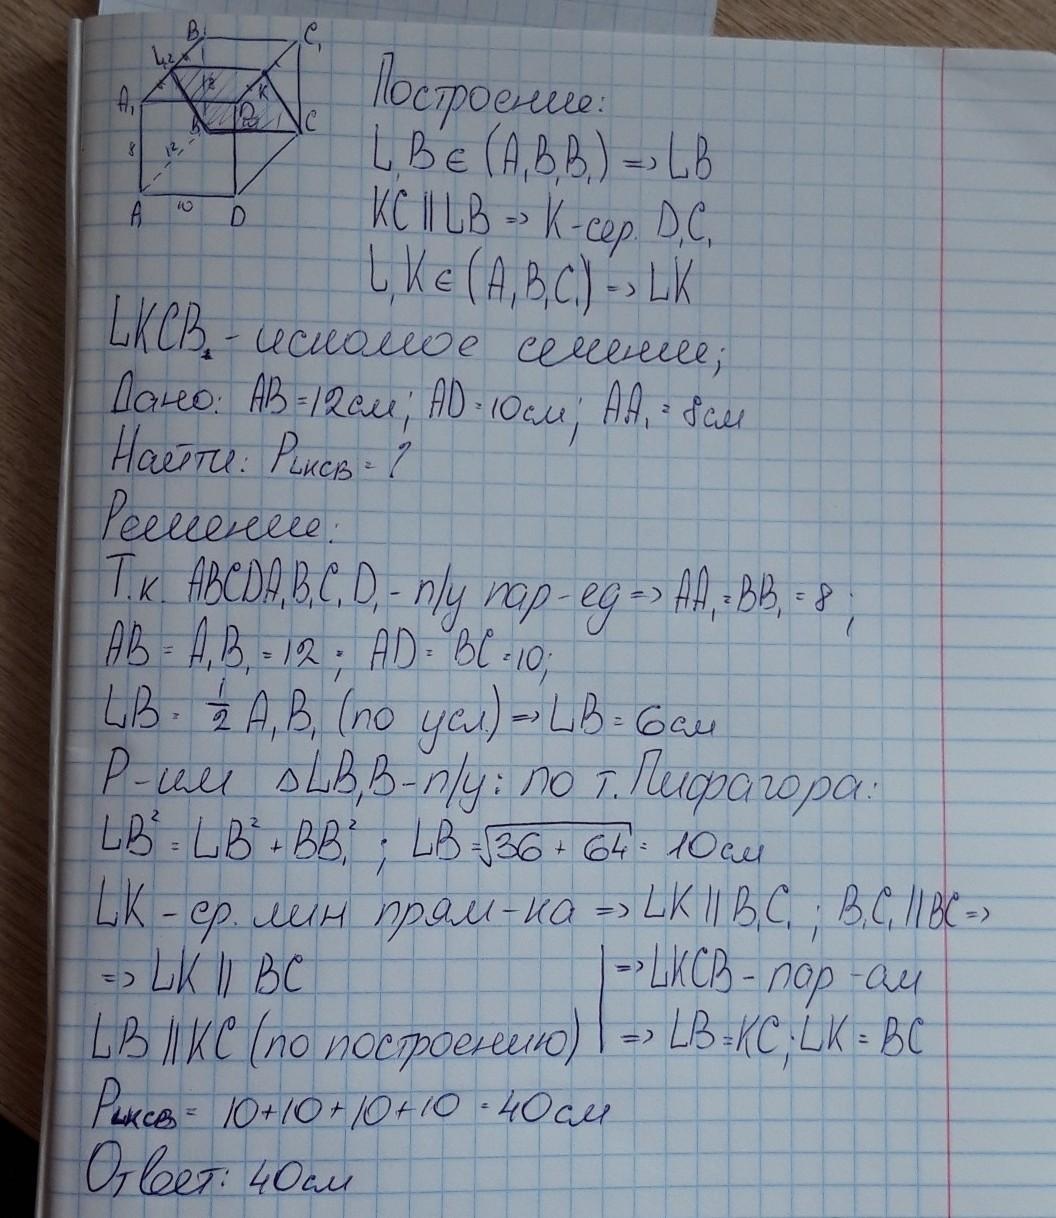 B₁ C₁
L
A₁ 12 K
D₁
B C
8 12
A 10 D
Построение:
L,B ∈ (A₁B₁B₁) => LB
KC || LB => K-сер. D₁C₁
L,K ∈ (A₁B₁C₁) => LK
LKCB - искомое сечение;
Дано: AB=12см; AD=10см; AA₁=8см
Найти: P LKCB = ?
Решение:
Т.к. ABCDA₁B₁C₁D₁ - п/у пар-ед => AA₁=BB₁=8;
AB = A₁B₁ = 12; AD = BC = 10;
LB = 1/2 A₁B₁ (по усл.) => LB = 6см
Р-им △LB₁B - п/у: по т. Пифагора:
LB² = LB² + BB₁²; LB = √36 + 64 = 10см
LK - ср. лин прям-ка => LK || B₁C₁; B₁C₁ || BC =>
=> LK || BC | => LKCB - пар-ам
LB || KC (по построению) | => LB=KC; LK = BC
P LKCB = 10+10+10+10 = 40см
Ответ: 40см